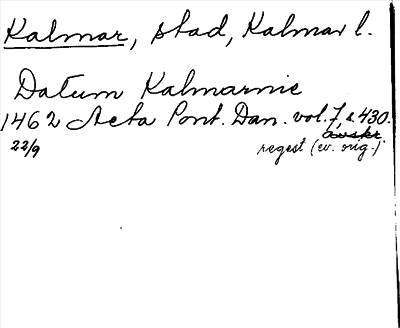 Kalmar, stad, Kalmar l.
Datum Kalmarnie
1462 Acta Pont. Dan. vol. 7, s. 430.
avskr.
22/9 regest (ev. orig.)